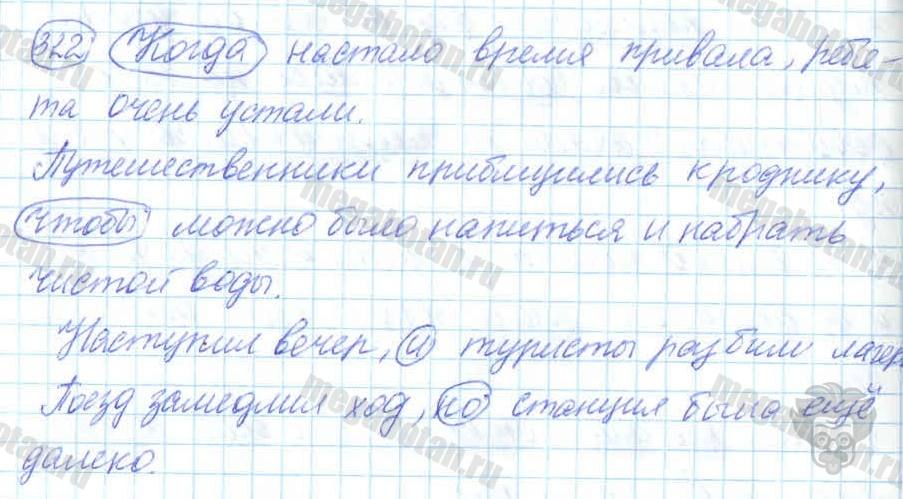 322 Когда настало время привала, ребя-
та очень устали.
Путешественники приблизились к роднику,
чтобы можно было напиться и набрать
чистой воды.
Наступил вечер, а туристы разбили лагерь
Поезд замедлил ход, но станция была ещё
далеко.
megabotan.ru